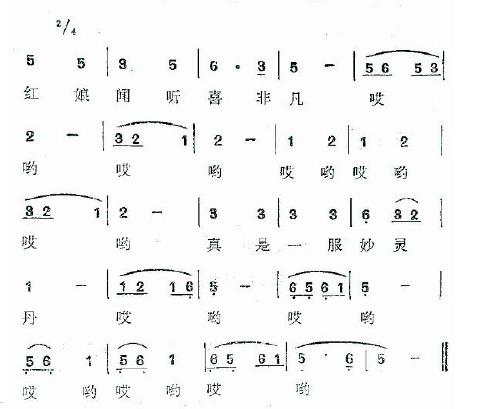 2/4
5 5 | 3 5 | 6 · 3 | 5 － | 5 6 5 3 |
红 娘 闻 听 喜 非 凡 哎
2 － | 3 2 1 | 2 － | 1 2 | 1 2 |
哟 哎 哟 哎 哟 哎 哟
3 2 1 | 2 － | 3 3 | 3 3 | 6 3 2 |
哎 哟 真 是 一 服 妙 灵
1 － | 1 2 1 6 | 5 － | 6 5 6 1 | 5 － |
丹 哎 哟 哎 哟
5 6 1 | 5 6 1 | 6 5 6 1 | 5 · 6 | 5 － ‖
哎 哟 哎 哟 哎 哟